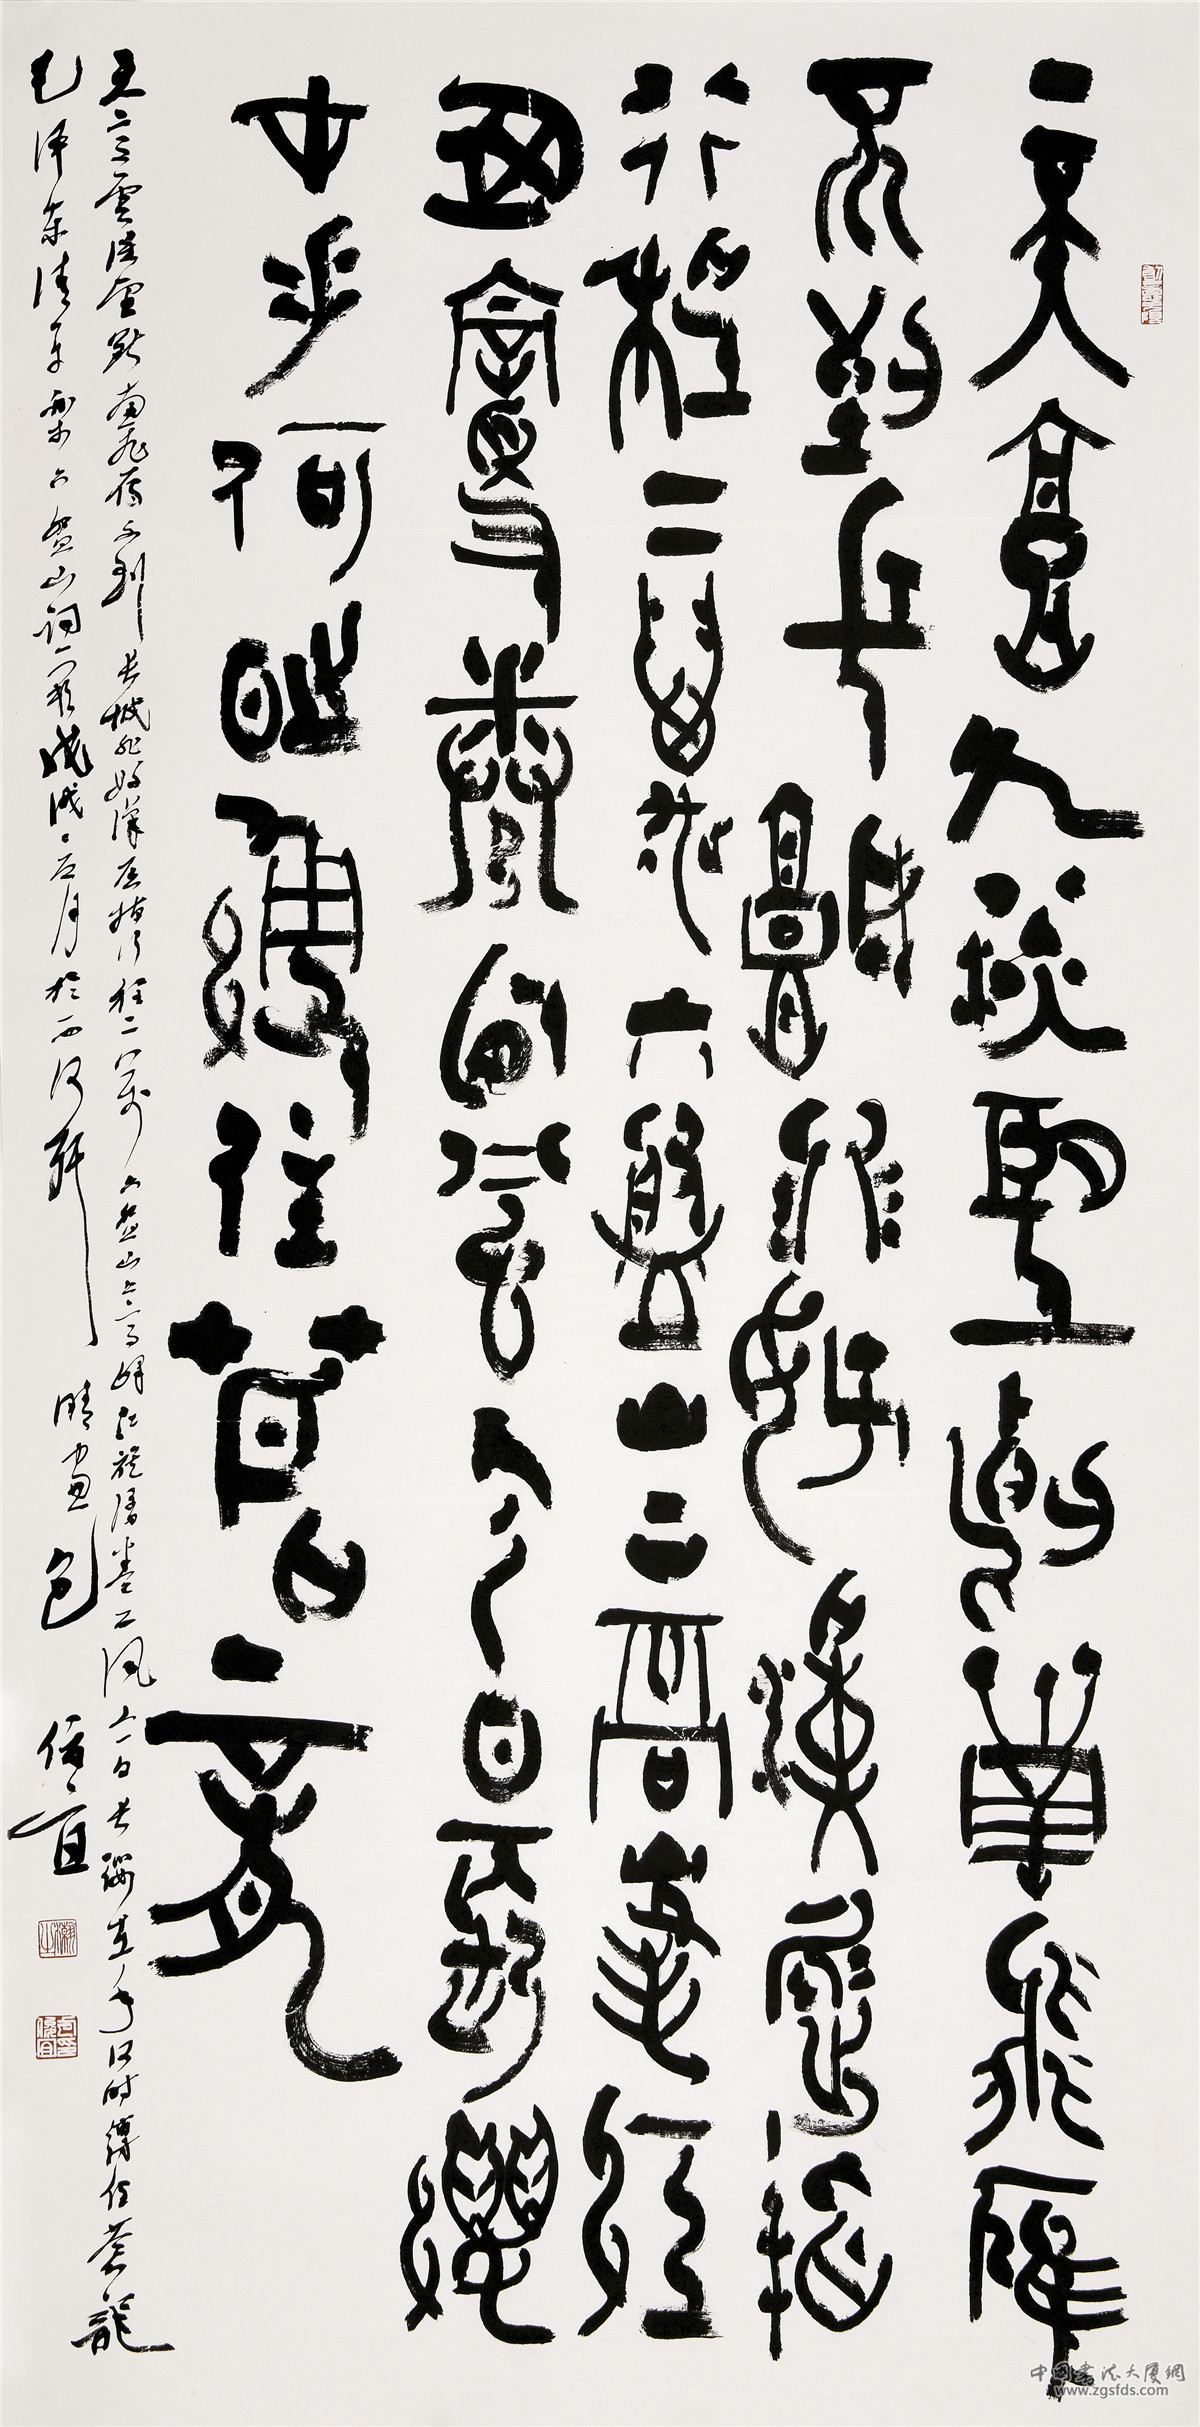 天高云淡望断南飞雁
不到长城非好汉屈指
行程二万六盘山上高峰红
旗漫卷西风今日长缨
在手何时缚住苍龙
天高雲淡望斷南飛雁不到長城非好漢屈指行程二萬六盘山上高峰红旗漫卷西風今日長缨在手何时縛住蒼龍
毛泽东清平乐六盘山词一首戊戌五月於西河轩
晴窗
中国书法大厦網
www.zgsfds.com